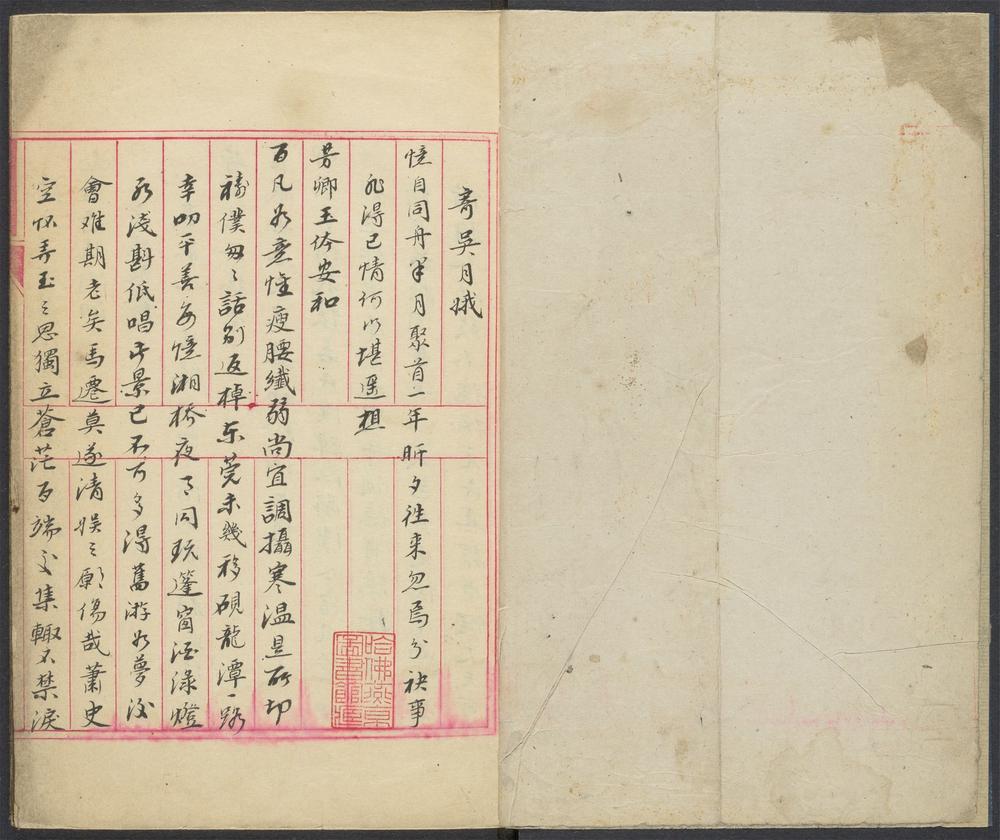 寄吳月娥
憶自同舟半月聚首一年昕夕往来忽焉分袂事
非得已情何以堪遥想
芳卿玉体安和
百凡如意惟瘦腰纖弱尚宜調攝寒温是所切
禱僕匆〻話別返棹东莞未幾移硯龍潭一路
幸叨平善每憶湘桥夜月同玩篷窗酒绿燈
红淺斟低唱此景已不可多得舊游如夢後
會难期老矣馬遷莫遂清娱之願傷哉蕭史
空怀弄玉之思獨立蒼茫百端交集輙不禁淚
哈佛燕京
圖書館